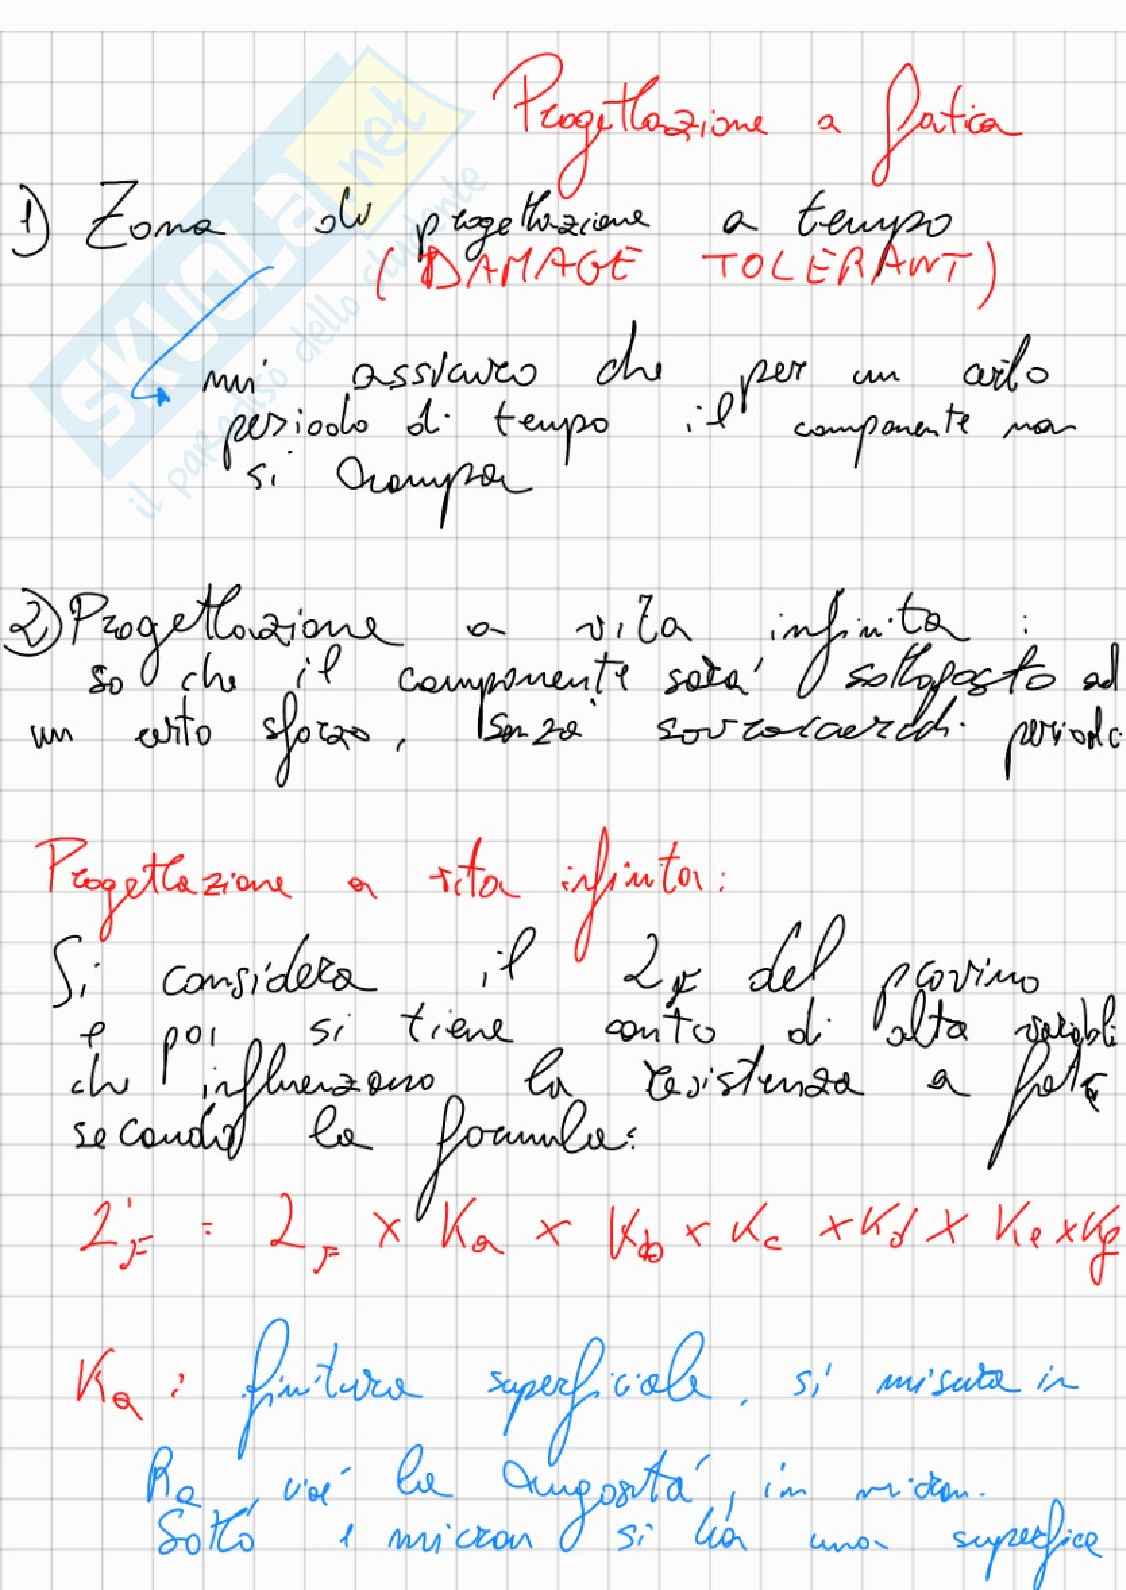 Progettazione a fatica
1) Zona di progettazione a tempo
(DAMAGE TOLERANT)
mi assicuro che per un certo
periodo di tempo il componente non
si rompa
2) Progettazione a vita infinita :
so che il componente sarà sottoposto ad
un certo sforzo, senza sovraccarichi
Progettazione a vita infinita:
Si considera il 2F del provino
e poi si tiene conto di
che influenzano la resistenza a
secondo la formula:
2'F = 2F × Ka × Kb × Kc × Kd × Ke × Kf
Ka : finitura superficiale, si misura in
Ra, cioè la rugosità, in micron.
Sotto 1 micron si ha una superfice
SKUOLA.net
il paradiso dello studente